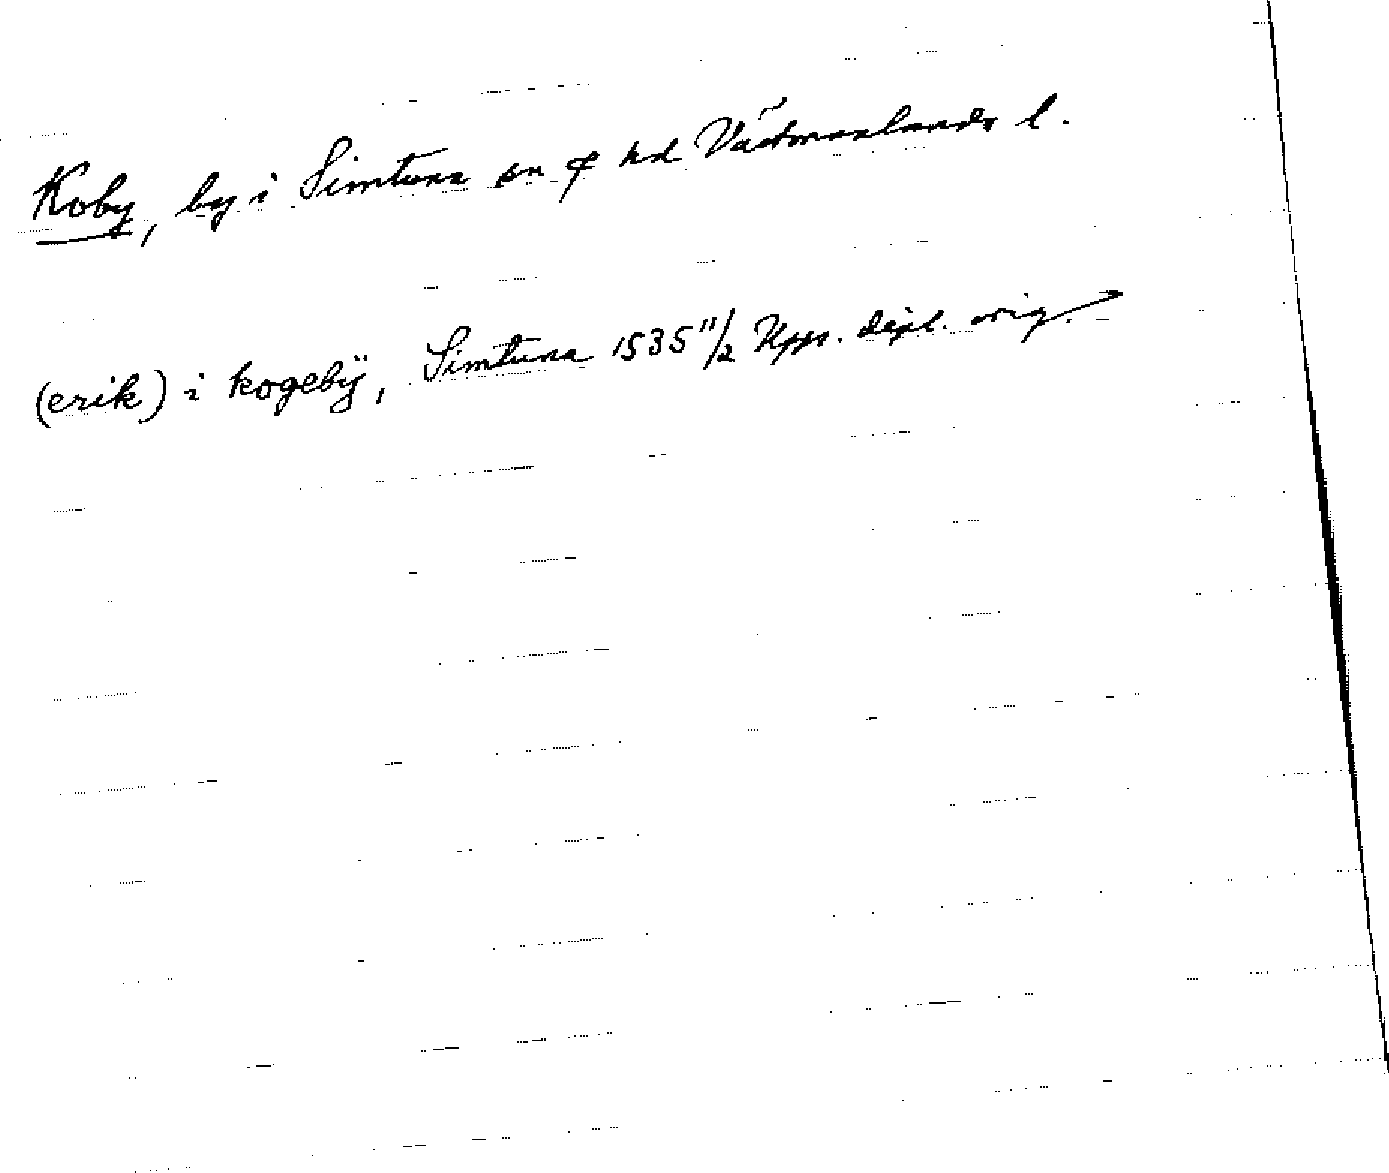 Koby, by i Simtuna sn ⌿ hd Västmanlands l.
(erik) i kogebÿ, Simtuna 1535 11/2 Upps. dipl. orig.